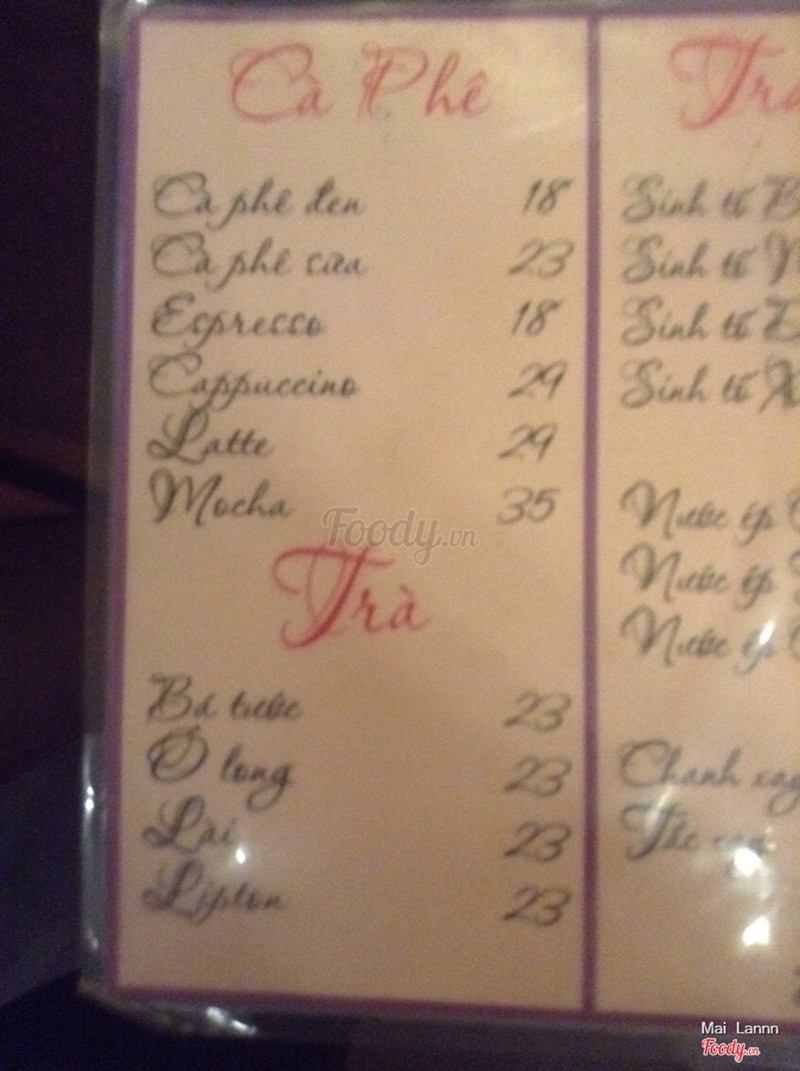 Cà Phê
Cà phê đen 18
Cà phê sữa 23
Espresso 18
Cappuccino 29
Latte 29
Mocha 35
Foody.vn
Trà
Bá tước 23
Ô long 23
Lài 23
Lipton 23
Sinh tố
Sinh tố
Sinh tố
Sinh tố
Nước ép
Nước ép
Nước ép
Chanh xay
Tắc xay
Mai Lannn
Foody.vn